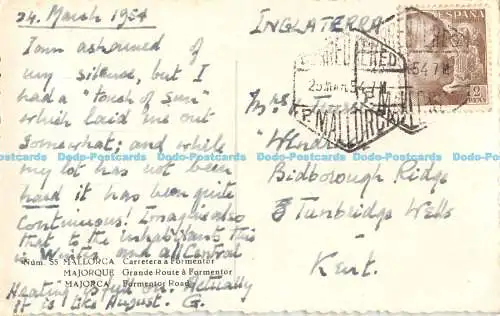 24. March 1954
I am ashamed of
my silence, but I
had a "touch of sun"
which laid me out
somewhat; and while
my lot has not been
hard it has been quite
continuous! Imagine also
that to the inhabitants this
is Winter and all Central
Heating is full on. Actually
it is like August. G.
Núm. 55 MALLORCA Carretera a Formentor
MAJORQUE Grande Route à Formentor
MAJORCA Formentor Road
INGLATERRA
Mrs
Bidborough Ridge
Tunbridge Wells
Kent.
ESPAÑA
CORREO AEREO
MALLORCA
2
PTAS
Do-Postcards Do-Postcards Do-Postcards Do-Postcards Do-Postcards Do-Postcards